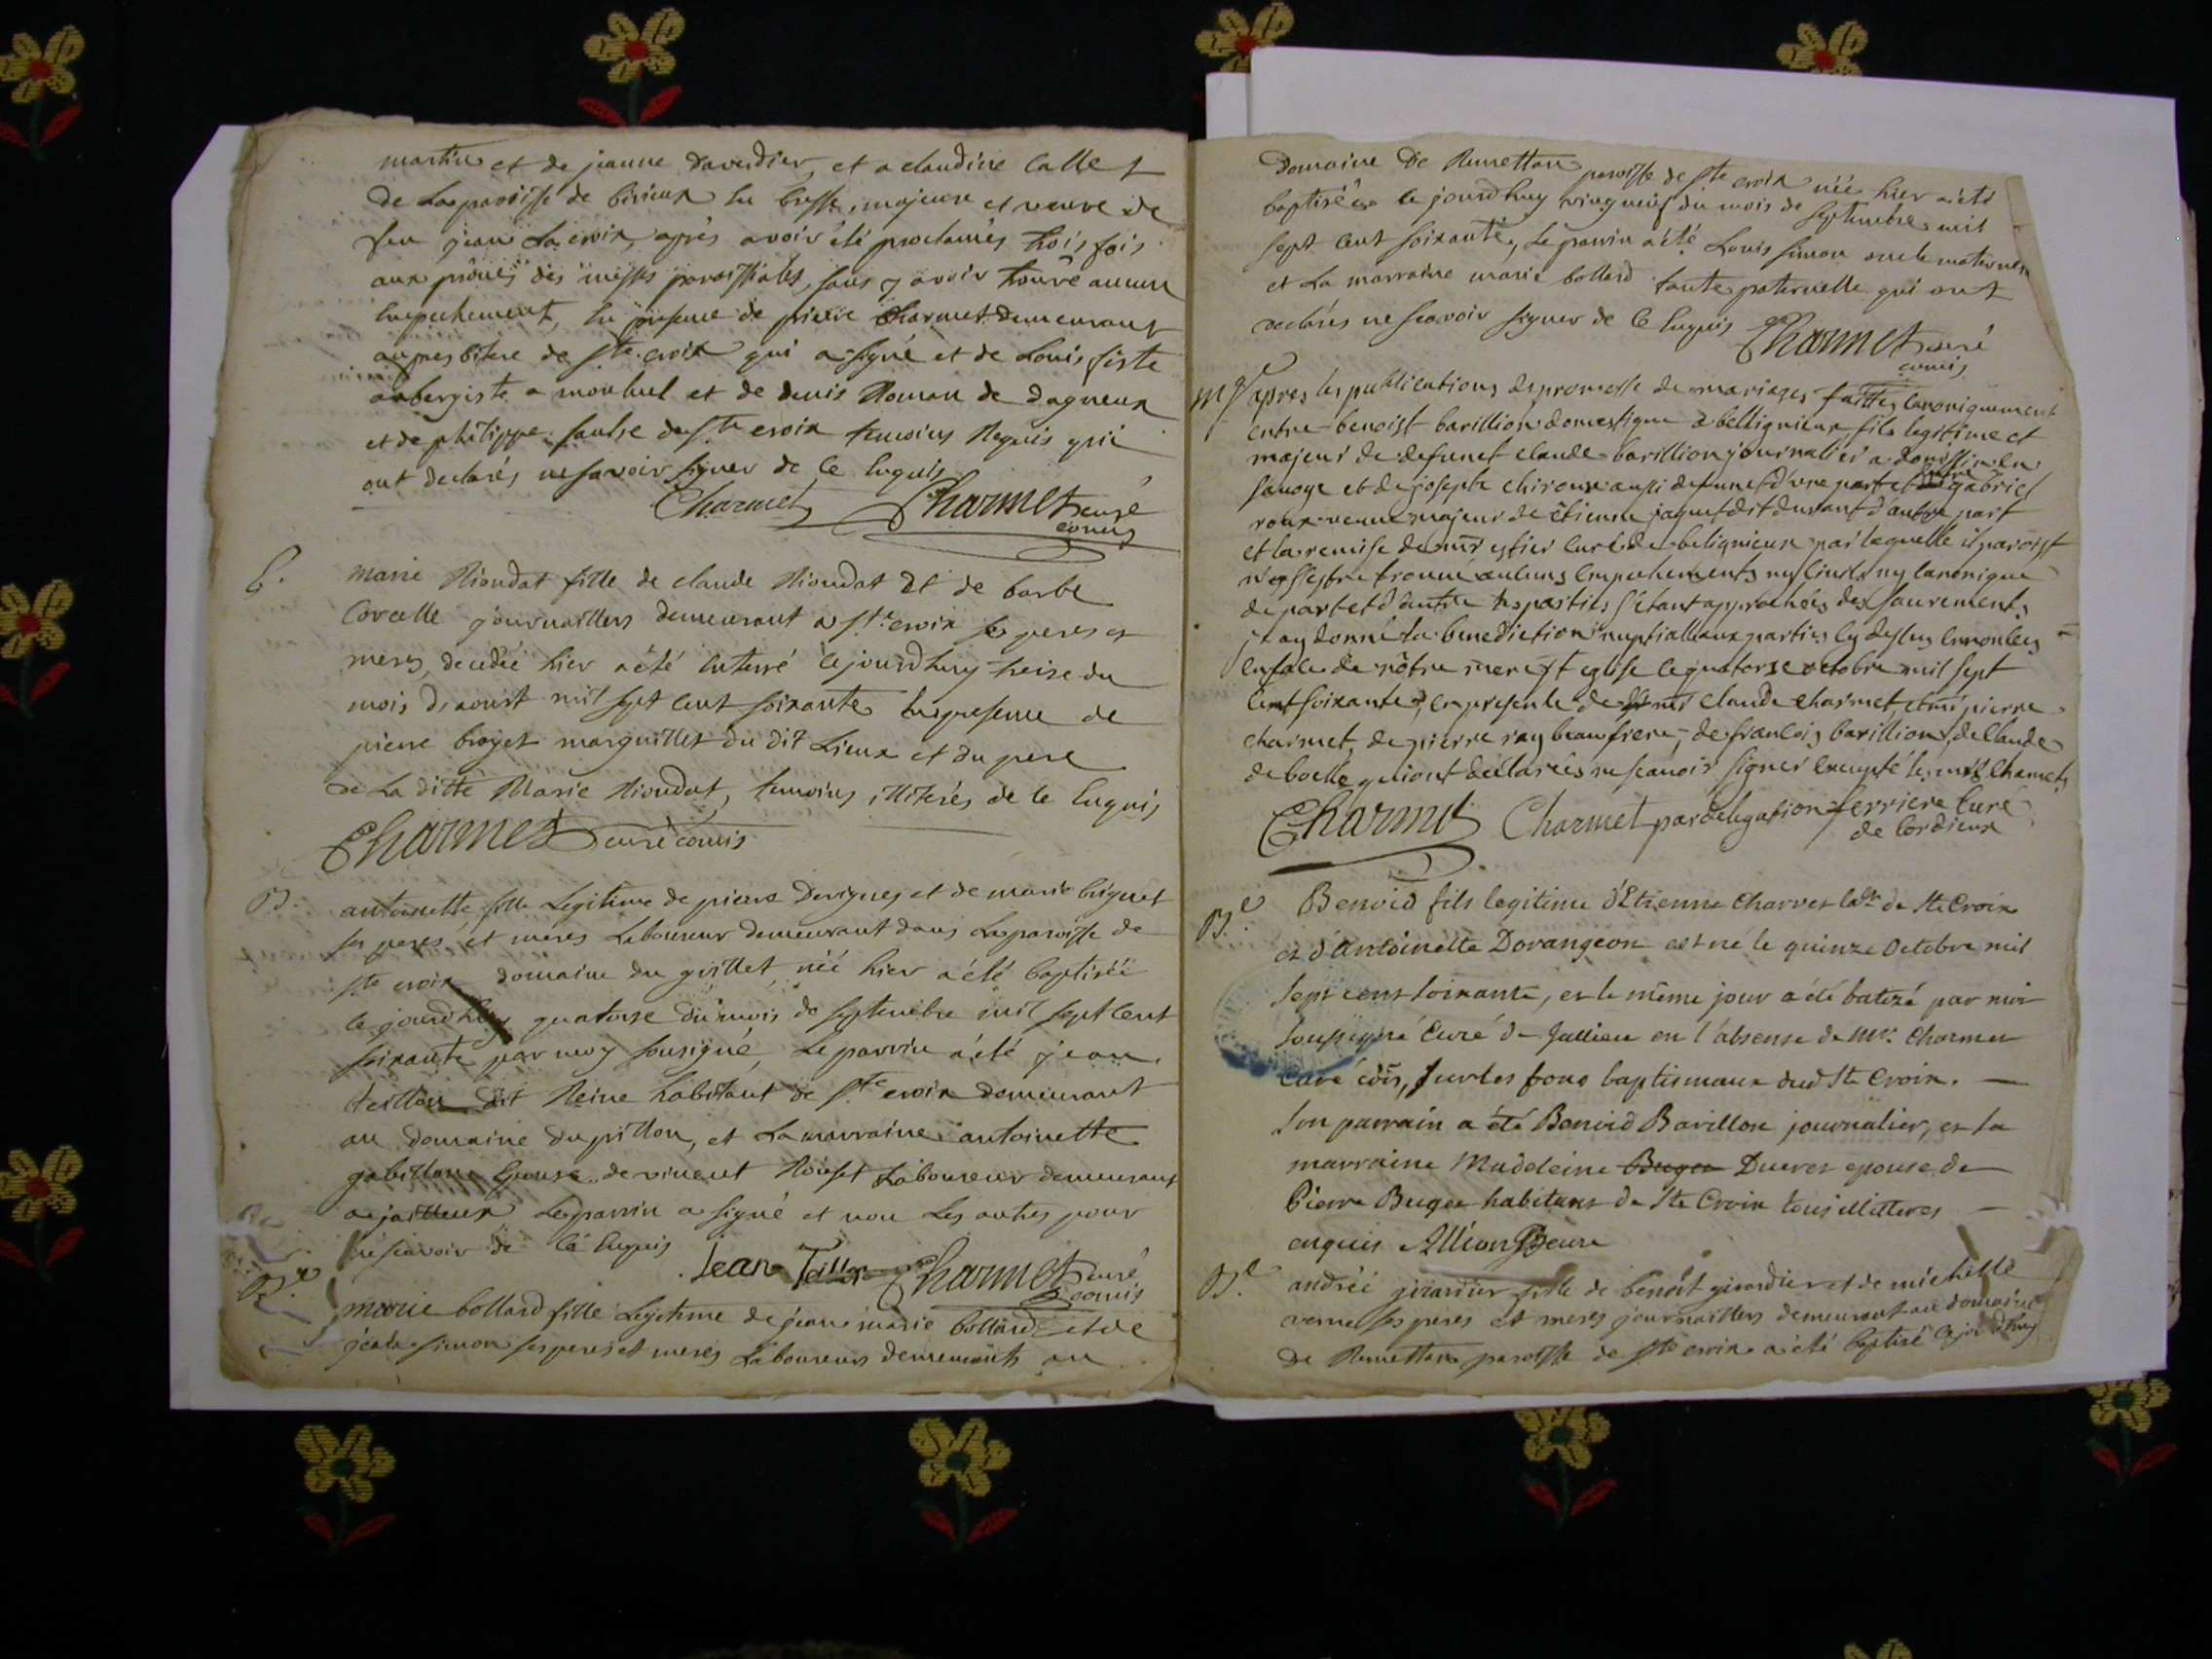 martin et de jeanne daverdier, et a claudine Callet
de La paroisse de birieux en bresse, majeure et veuve de
feu jean La croix, après avoir été proclamés trois fois
aux prônes des messes paroissiales, sans y avoir trouvé aucun
empechement, en presence de pierre Charmet demeurant
au presbitere de ste croix qui a signé et de Louis fiste
aubergiste a monluel et de denis Roman de dagneux
et de philippe de ste croix temoins Requis qui
ont declarés ne savoir signer de ce Enquis
Charmet Charmet curé
comis
E. marie Rioudat fille de claude Rioudat Et de barbe
Corcelle journailliers demeurant a ste croix ses peres et
meres, decedée hier a été enterré cejourdhuy treise du
mois d'aoust mil sept cent soixante En presence de
pierre broyet marguillier du dit Lieux et du pere
de La ditte Marie Rioudat, temoins illiterés de ce Enquis
Charmet curé comis
B. antoinette fille Legitime de pierre Devignes et de marie
ses peres et meres Laboureur demeurant dans La paroisse de
ste croix domaine du grillet, née hier a été baptisée
le jourdhuy quatorse du mois de septembre mil sept cent
soixante par moy sousigné, Le parrin a été jean
teillon dit Reine habitant de ste croix demeurant
au domaine du pillon, et La marraine antoinette
gabillon Epouse de vincent Rouset Laboureur demeurant
a jailleux Le parrin a signé et non Les autres pour
ne scavoir de ce Enquis Jean Teillon Charmet curé
comis
B.e marie bollard fille Legitime de jean marie bollard et de
simon ses peres et meres Laboureurs demeurants au
Domaine De Remettan paroisse de ste croix née hier a été
baptisée le jourdhuy vingneuf du mois de septembre mil
sept cent soixante, Le parrin a été Louis simon oncle maternel
et La marraine marie bollard tante paternelle qui ont
declarés ne scavoir signer de ce Enquis Charmet curé
comis
Mge apres les publications de promesse de mariages faittes canoniquement
entre benoist barillion domestique a bellignieux fils legitime et
majeur de defunct claude barillion journalier a en
savoye et de joseph chiroux aussi defunct d'une part et gabriel
roux veuve majeur de étienne jaquet dit durant d'autre part
et la remise de mr curé de belignieux par laquelle il paroist
n'estre trouvé auluns empechements ny civils ny canonique
de part et d'autre les parties s'étant approchées des sacrements
j'ay donné la benediction nuptialle aux parties cy dessus ennoncées
en face de nôtre mere st eglise le quatorse octobre mil sept
cent soixante, en presence de claude charmet, et mr pierre
charmet, de pierre ray beaufrere, de francois barillion, de claude
deboelle qui ont declarées ne scauoir signer excepté les mrs Charmets
Charmet Charmet par delegation ferriere curé
de Cordieux
B.e Benoid fils legitime d'Etienne Charvet labr de Ste Croix
et d'Antoinette Dorangeon est né le quinze Octobre mil
sept cens soixante, et le même jour a été batizé par moi
soussigné Curé de Jallieu en l'absense de Mr. Charmet
curé cõis, sur les fons baptismaux dud Ste Croix.
Son parrain a été Benoid Barillon journalier, et la
marraine Madeleine Buget Ducret epouse de
Pierre Buget habitans de Ste Croix tous illitteres
enquis Allion curé
B.e andrée girardier fille de benoit girardier et de michelle
verne ses peres et meres journailliers demeurant au domaine
De Remettan paroisse de ste croix a été baptisé cejourdhuy